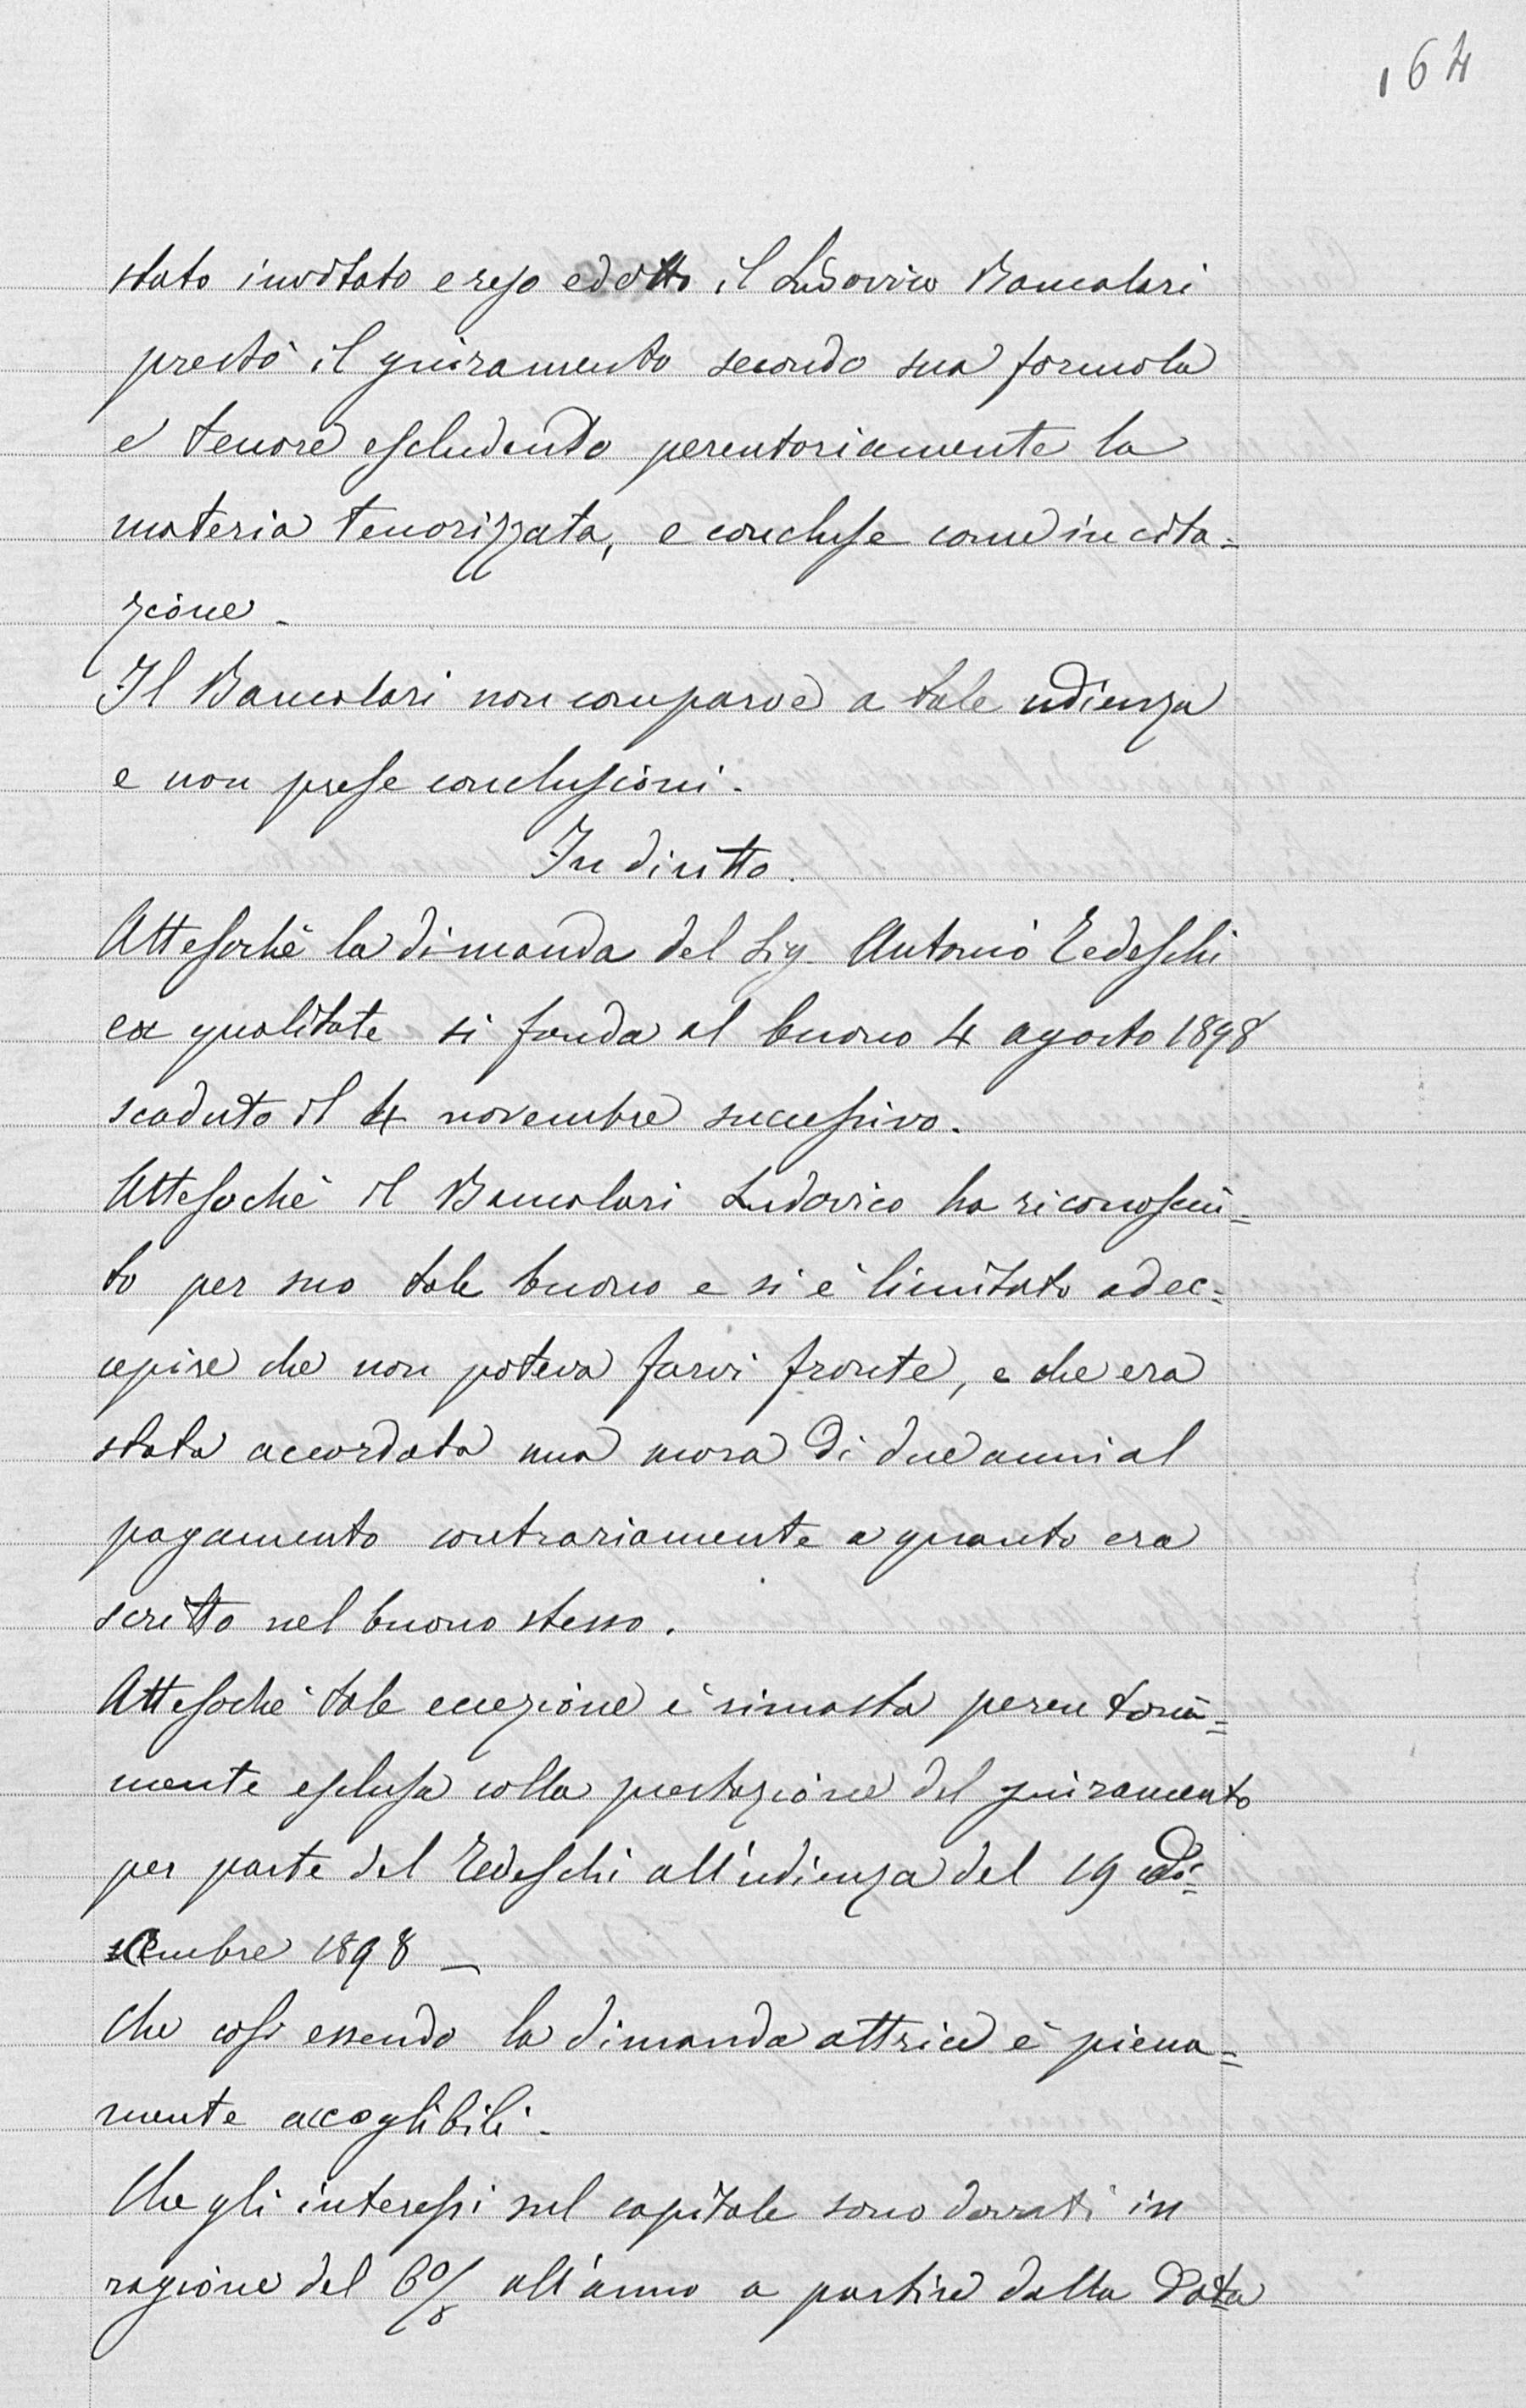 164
stato invitato e reso edotto il Ludovico Bancalari
prestò il giuramento secondo sua formola
e tenore escludendo perentoriamente la
materia tenorizzata, e concluse come in cita=
zione.
Il Bancalari non comparve a tale udienza
e non prese conclusioni.
In diritto.
Attesochè la dimanda del Sig. Antonio Tedeschi
ex qualitate si fonda al buono 4 agosto 1898
scaduto il 4 novembre successivo.
Attesochè il Bancalari Ludovico ha riconosciu=
to per suo tale buono e si è limitato ad ec=
cepire che non poteva farvi fronte, e che era
stata accordata una mora di due anni al
pagamento contrariamente a quanto era
scritto nel buono stesso.
Attesochè tale eccezione è rimasta perentoria=
mente esclusa colla prestazione del giuramento
per parte del Tedeschi all'udienza del 19 di=
cembre 1898 _
Che così essendo la dimanda attrice è piena=
mente accoglibili.
Che gli interessi sul capitale sono dovuti in
ragione del 6% all'anno a partire dalla data